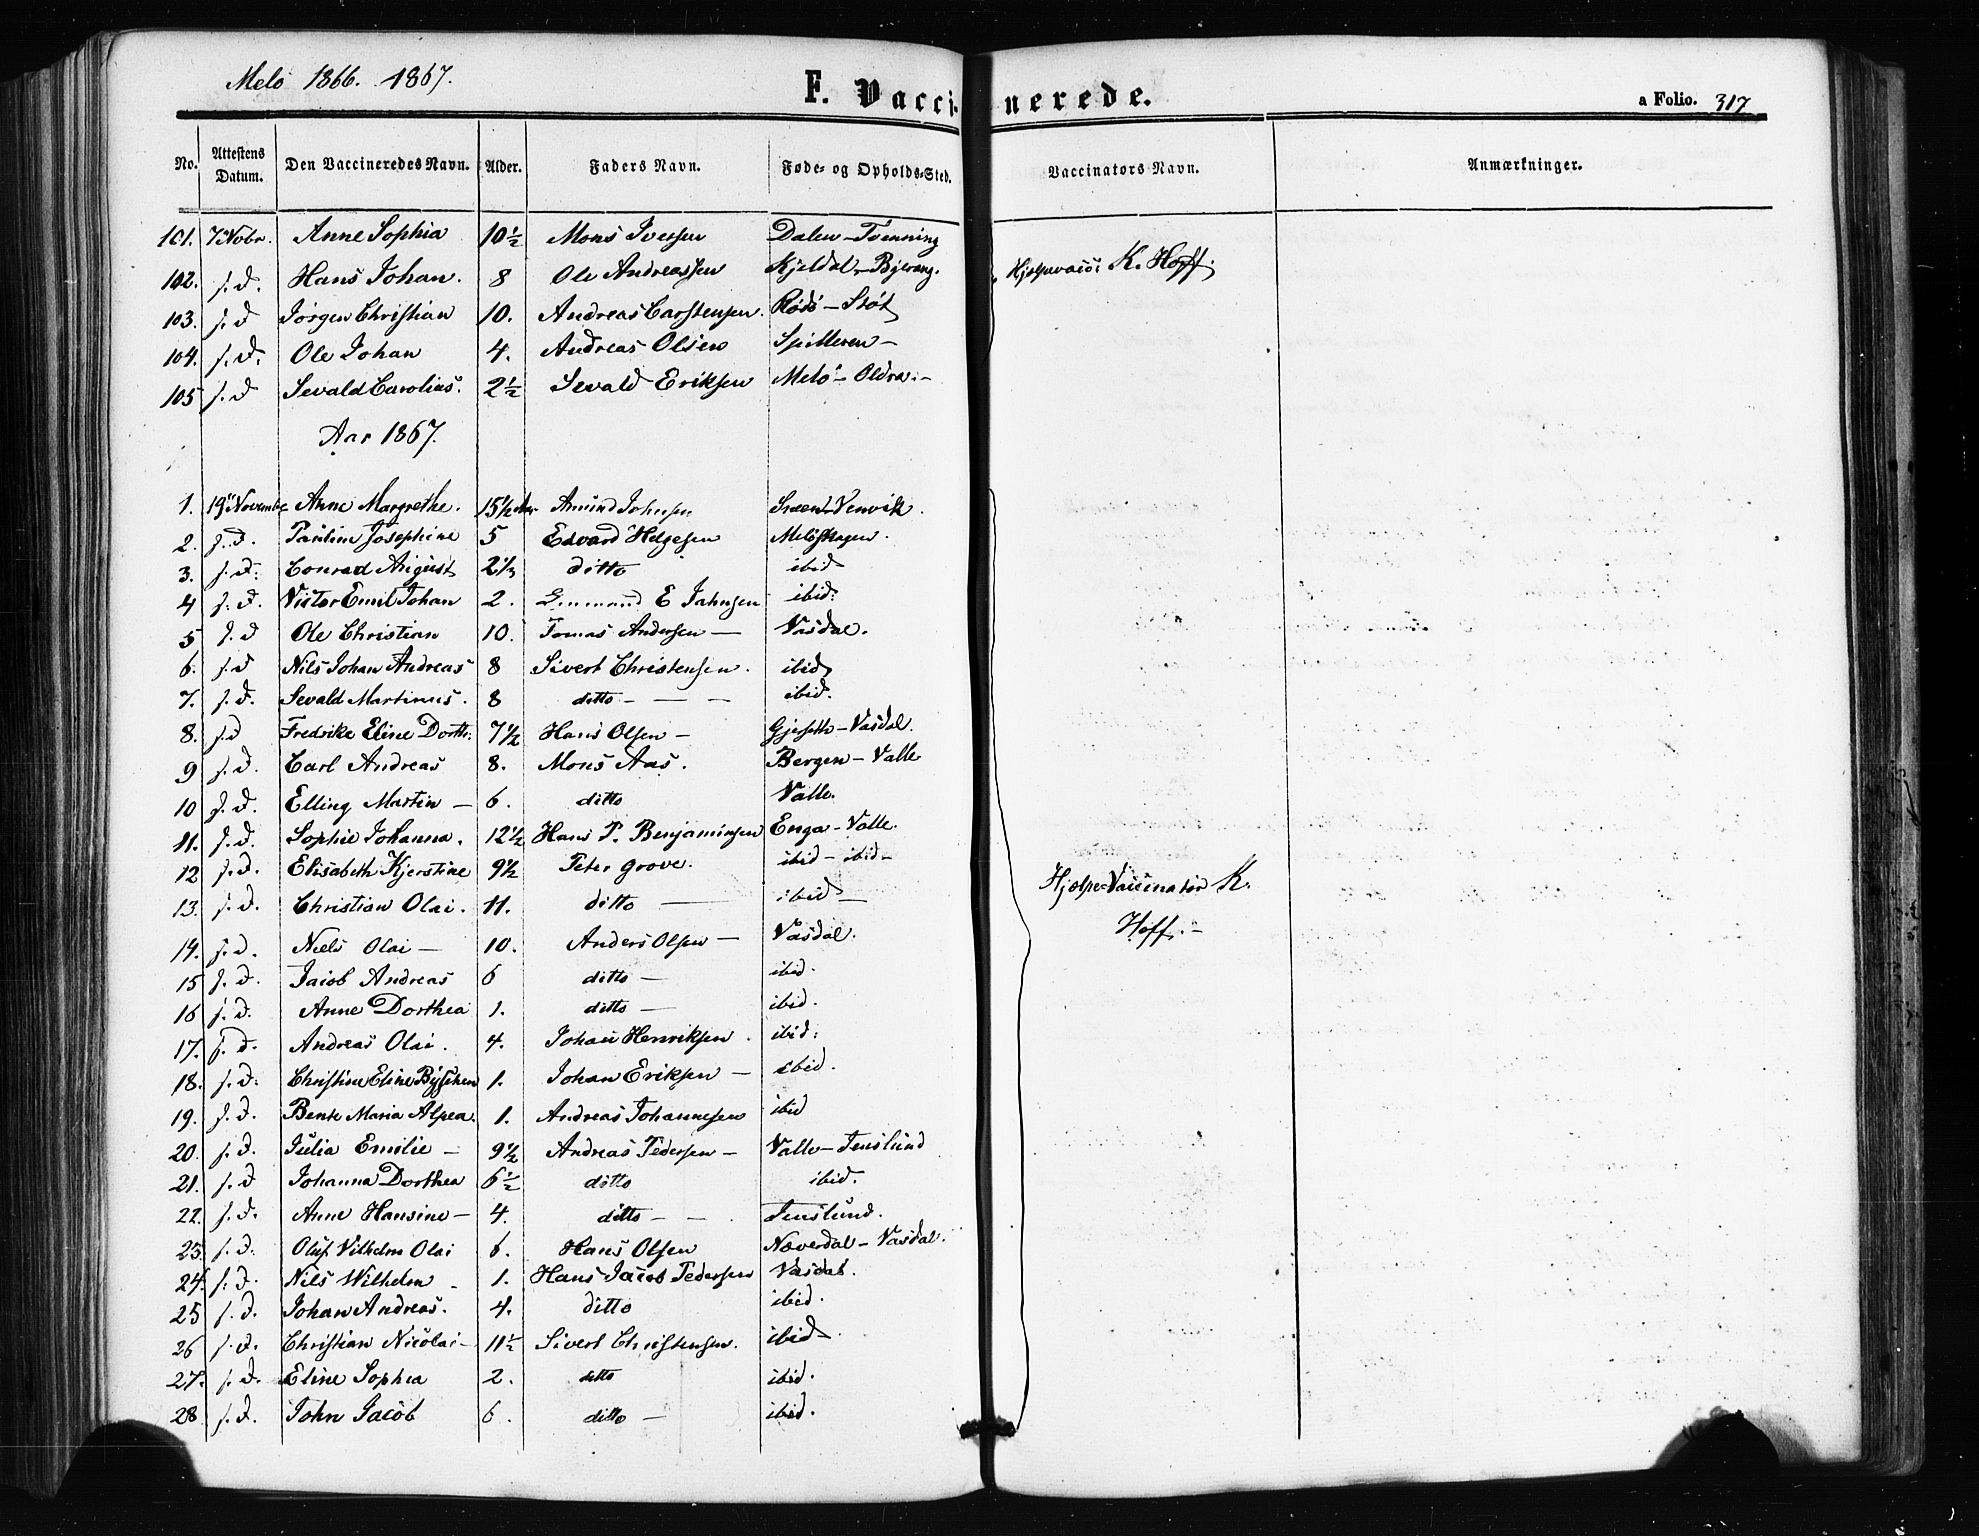 Melö 1866. 1867.
F. Vaccinerede.
a Folio. 317
No. Attestens Datum. Den Vaccineredes Navn. Alder. Faders Navn. Føde- og Opholds-Sted. Vaccinators Navn. Anmærkninger.
101. 7 Novbr. Anne Sophia 10½ Mons Iversen Dalen - Tvenning
102. s. d. Hans Johan. 8 Ole Andreassen Kjeldal - Hjelpevacci K. Hoff.
103. s. d Jörgen Christian 10. Andreas Carstensen. Rödö - Stöt
104. s. d. Ole Johan 4. Andreas Olsen Spilleren -
105 s. d Sevald Carolius. 2½ Sevald Eriksen Melö - Oldra. -
Aar 1867.
1. 19 Novembr Anne Margrethe. 15½ Aar Amund Johnsen Venvik.
2. s. d. Pauline Josephine 5 Edvard Helgesen Melöskagen.
3. s. d. Conrad August 2⅓ ditto ibid
4 s. d. Victor Emil Johan 2. E Jahnsen ibid:
5 s. d Ole Christian 10. Tomas Andersen — Vasdal.
6. s. d Nils Johan Andreas 8 Sivert Christensen. ibid
7. s. d. Sevald Martinus. 8 ditto - — — ibid.
8. s. d Fredrike Eline Dorth. 7½ Hans Olsen - Gjerseth - Vasdal.
9 s. d. Carl Andreas 8. Mons Aas. Bergen - Valle
10 s. d. Elling Martin — 6. ditto Valle.
11. s. d. Sophie Johanna. 12½ Hans P. Benjaminsen Enga - Valle.
12 s. d. Elisabeth Kjerstine 9½ Peter Grove. ibid - ibid -
13. s. d. Christian Olai. 11. ditto — ibid — Hjelpe-Vaccinatör K.
14. s. d. Niels Olai — 10. Anders Olsen — Vasdal. Hoff. -
15 s. d. Jacob Andreas 6 ditto — ibid.
16 s. d. Anne Dorthea 1. ditto — ibid.
17. s. d. Andreas Olai. 4. Johan Henriksen. ibid:
18. s. d. Christine Eline 1. Johan Eriksen — ibid.
19. s. d. Bente Maria Alpea. 1. Andreas Johannesen ibid
20. s. d. Julia Emilie — 9½ Andreas Pedersen — Valle - Jenslund
21. s. d Johanna Dorthea 6½ ditto ibid.
22. s. d. Anne Hansine — 4. ditto - - Jenslund.
23. s. d. Oluf Vilhelm Olai 6. Hans Olsen Næverdal - Vasdal.
24. s. d. Nils Wilhelm - 1. Hans Jacob Pedersen Vasdal.
25 s. d. Johan Andreas. 4. ditto ibid.
26 s. d. Christian Nicolai - 11½ Sivert Christensen. ibid
27. s. d. Eline Sophia 2. ditto ibid.
28 s. d. John Jacob 6. ditto — ibid.